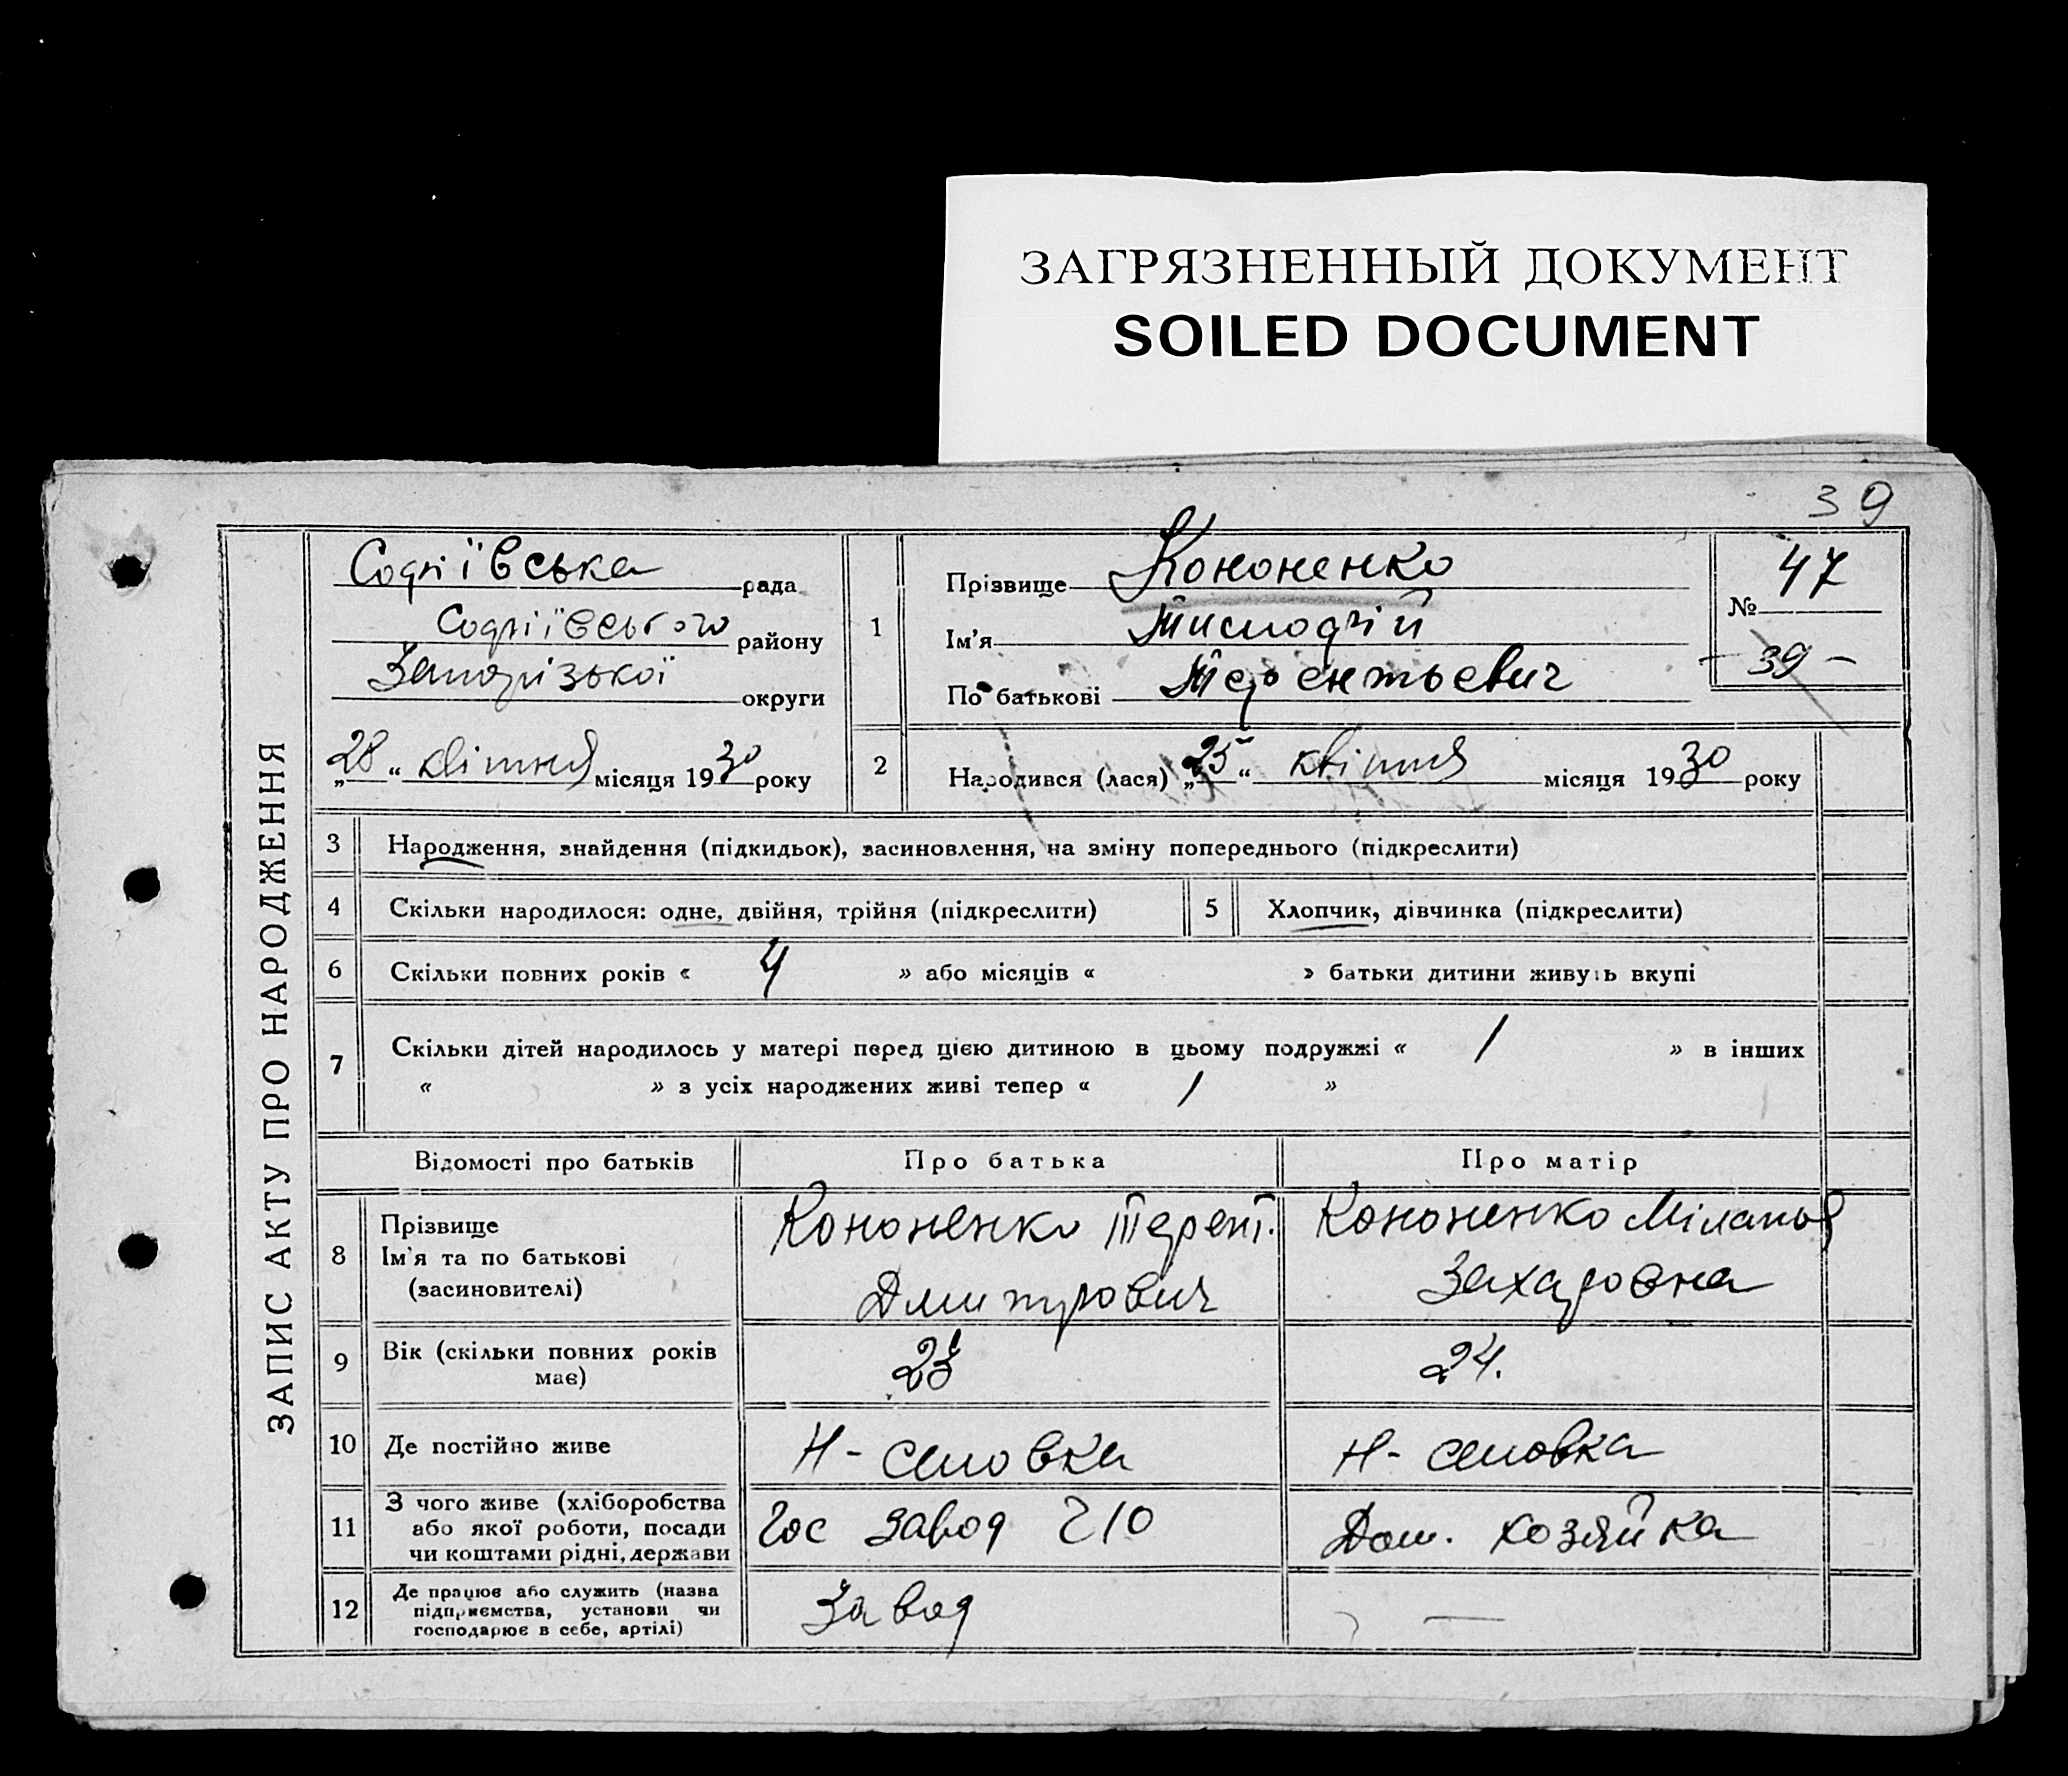 ЗАГРЯЗНЕННЫЙ ДОКУМЕНТ
SOILED DOCUMENT
39
ЗАПИС АКТУ ПРО НАРОДЖЕННЯ
Софіївська рада
Софіївського району
Запорізької округи
„28“ квітня місяця 1930 року
1
Прізвище Кононенко
Ім'я Тимофій
По батькові Терентьевич
№ 47
- 39 -
2 Народився (лася) „25“ квітня місяця 1930 року
3 Народження, знайдення (підкидьок), засиновлення, на зміну попереднього (підкреслити)
4 Скільки народилося: одне, двійня, трійня (підкреслити) 5 Хлопчик, дівчинка (підкреслити)
6 Скільки повних років « 4 » або місяців « » батьки дитини живуть вкупі
7 Скільки дітей народилось у матері перед цією дитиною в цьому подружжі « 1 » в інших
« » з усіх народжених живі тепер « 1 »
Відомості про батьків Про батька Про матір
8 Прізвище
Ім'я та по батькові
(засиновителі)
Кононенко Терент.
Дмитрович
Кононенко Міланья
Захаровна
9 Вік (скільки повних років
має)
23
24.
10 Де постійно живе Н-
Н-
11 З чого живе (хліборобства
або якої роботи, посади
чи коштами рідні, держави
Гос завод 210
Дом. хозяйка
12 Де працює або служить (назва
підприємства, установи чи
господарює в себе, артілі)
Завод
—